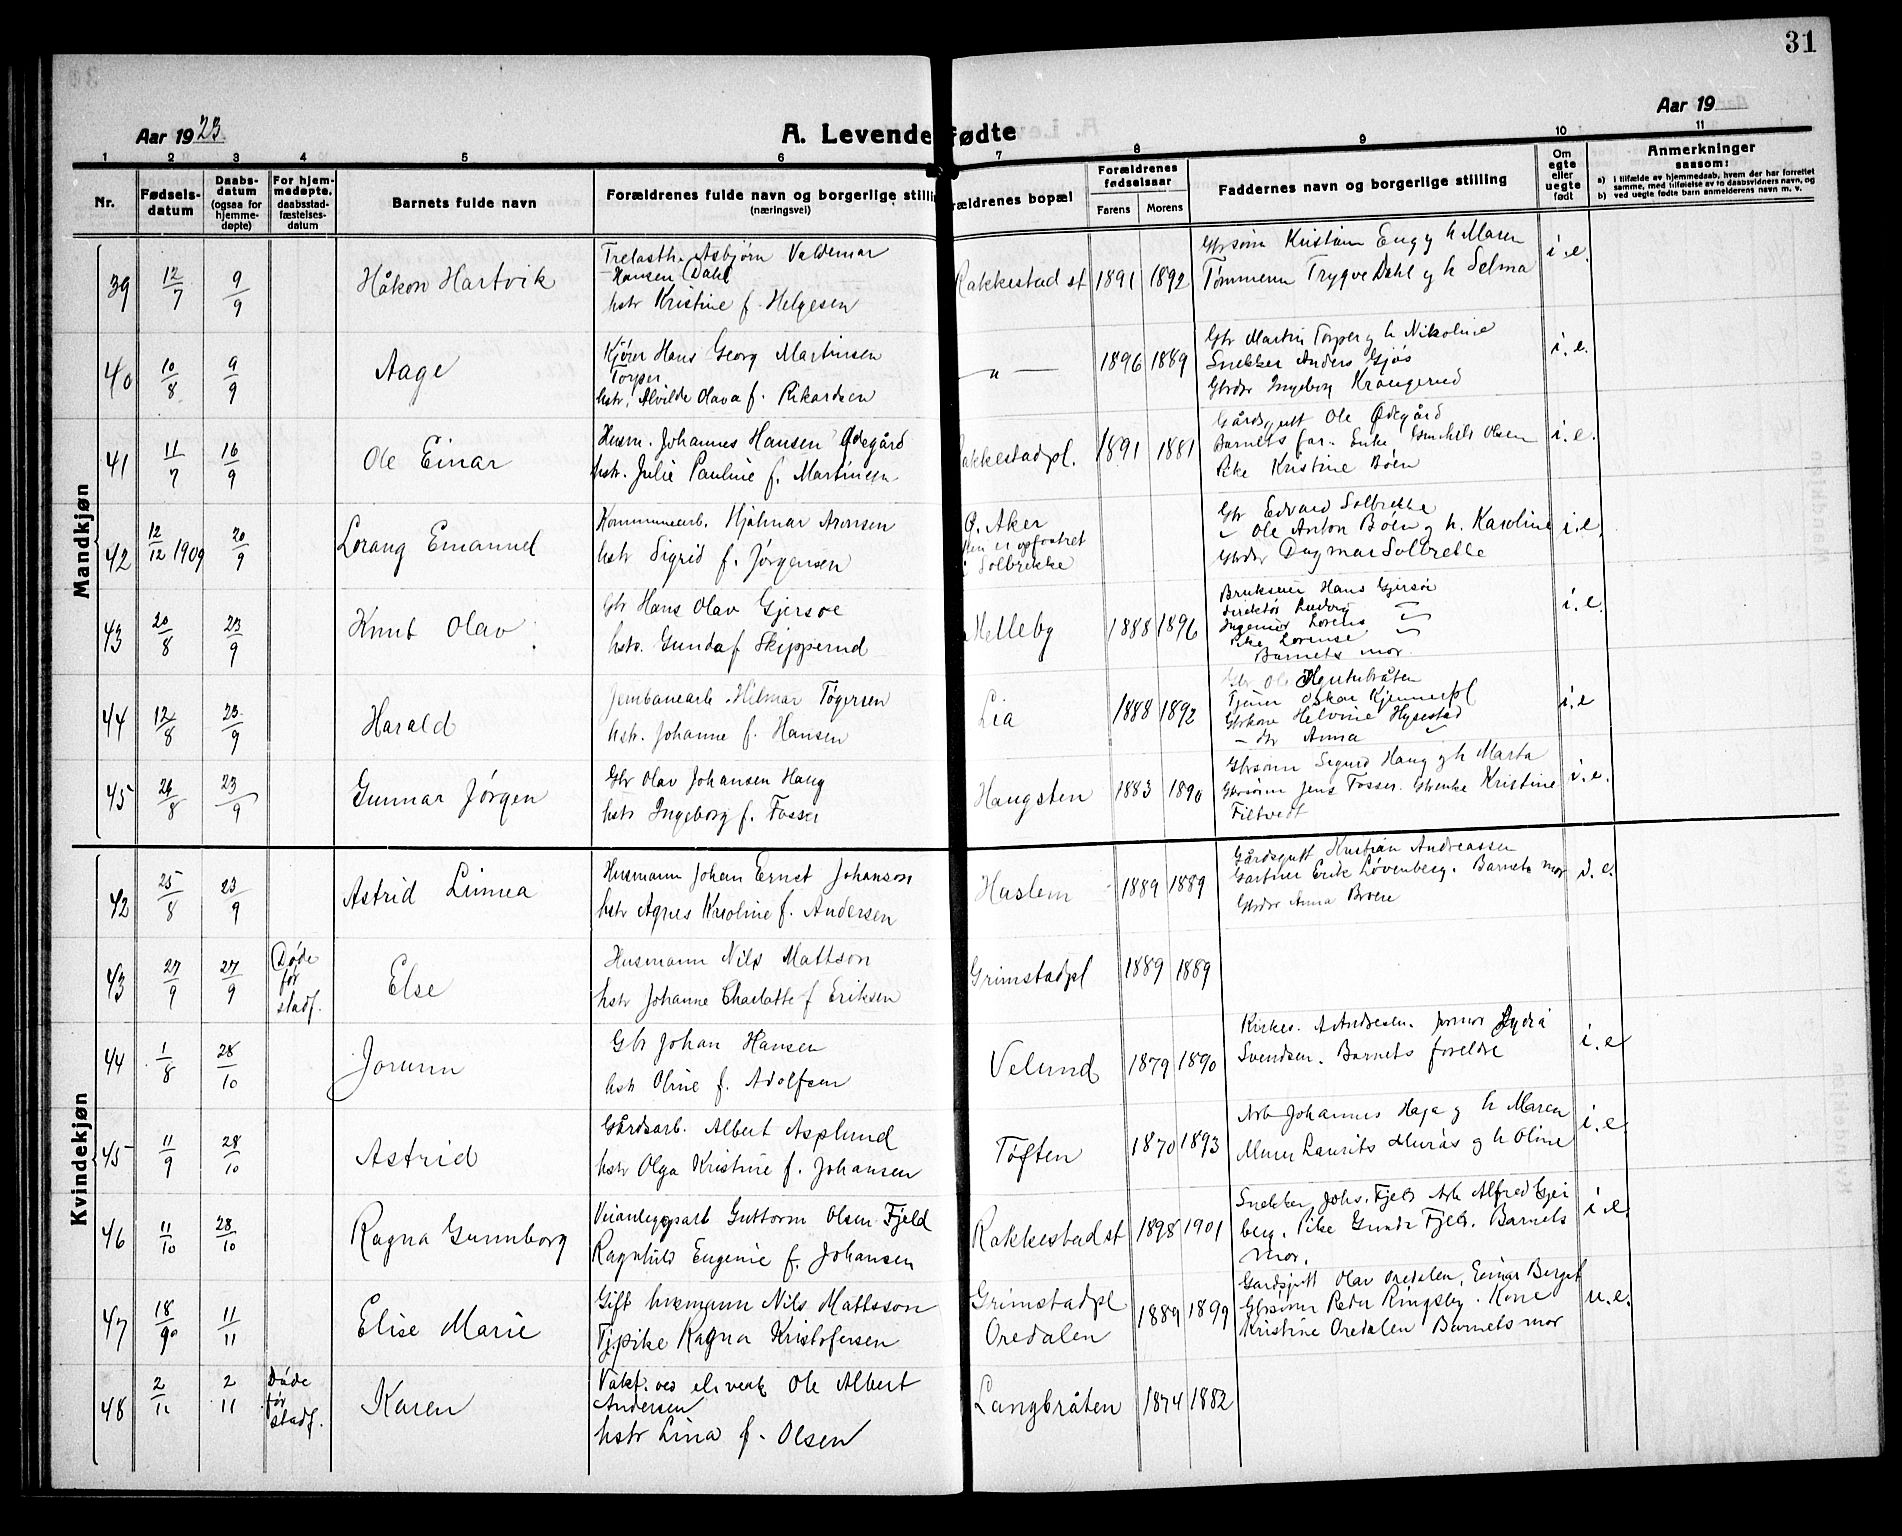 31
Aar 1923
A. Levendefødte
Aar 19
1 2 3 4 5 6 7 8 9 10 11
Nr.
Fødselsdatum
Daabsdatum (ogsaa for hjemmedøpte)
For hjemmedøpte, daabsstadfæstelsesdatum
Barnets fulde navn
Forældrenes fulde navn og borgerlige stilling
(næringsvei)
ældrenes bopæl
Forældrenes fødselsaar
Farens Morens
Faddernes navn og borgerlige stilling
Om egte eller uegte født
Anmerkninger
saasom:
a) i tilfælde av hjemmedaab, hvem der har forrettet samme, med tilføielse av to daabsvidners navn, og
b) ved uegte fødte barn anmelderens navn m. v.
Mandkjøn
39 12/7 9/9 Håkon Hartvik
Trelasth. Asbjørn Valdemar
Hansen Dahl
hstr Kristine f. Helgesen
Rakkestad st 1891 1892
Gbrsønn Kristian Eng og h Maren
Tømmerm Trygve Dahl og h Selma
i.e.
40 10/8 9/9 Aage
Kjører Hans Georg Martinsen
Torper
hstr. Alvilde Olava f. Rikardsen
— " — 1896 1889
Gbr Martin Torper og h Nikoline
Snekker Anders Gjøs
Gbrdtr Ingeborg Krangerud
i.e.
41 11/7 16/9 Ole Einar
Husm. Johannes Hansen Ødegård
hstr. Julie Pauline f. Martinsen
akkestadpl. 1891 1881
Gårdsgutt Ole Ødegård
Barnets far. Enke Olsen
Pike Kristine Bøen
i.e.
42 12/12 1909 20/9 Lorang Emanuel
Kommunearb. Hjalmar Aronsen
hstr Sigrid f. Jørgensen
Ø. Aker
er opfostret
i Solbrekke
Gbr Edvard Solbrekke
" Ole Anton Bøen og h. Karoline
Gbrdtr Dagmar Solbrekke
i.e.
43 20/8 23/9 Knut Olav
Gbr Hans Olav Gjersøe
hstr. Gunda f Skipperud
Melleby 1888 1896
Brukseier Hans Gjersøe
Direktør Ludvig "
Ingeniør Lorens "
Pike Lorense "
Barnets mor
i.e.
44 12/8 23/9 Harald
Jernbanearb. Hilmar Tøgersen
hstr. Johanne f. Hansen
Lia 1888 1892
Gbr Ole
Tjener Oskar
Gbrkone Helvine Hysestad
— dtr Anna "
i.e
45 29/8 23/9 Gunnar Jørgen
Gbr Olav Johansen Haug
hstr Ingeborg f. Fosser
Haugsten 1883 1890
Gbrsønn Sigurd Haug og h Marta
Gbrsønn Jens Fosser. Gbrenke Kristine
Filtvedt
i.e.
Kvindekjøn
42 25/8 23/9 Astrid Linnea
Husmann Johan Ernst Johanson
hstr Agnes Karoline f. Andersen
Haslem 1889 1889
Gårdsgutt Kristian Andreassen
Gartner Erik Løvenberg. Barnets mor
Gbrdtr Anna Broen
i.e.
43 27/9 27/9 Døde før stadf. Else
Husmann Nils Mattson
hstr Johanne Charlotte f Eriksen
Grimstadpl 1889 1889
44 1/8 28/10 Jorunn
Gbr Johan Hansen
hstr Oline f. Adolfsen
Velund 1879 1890
Kirkes. A Andresen. Lydia
Svendsen. Barnets foreldre
i.e
45 11/9 28/10 Astrid
Gårdsarb. Albert Asplund
hstr Olga Kristine f. Johansen
Tøften 1870 1893
Arb Johannes Haga og h Maren
Murer Laurits Murås og h Oline
i.e
46 11/10 28/10 Ragna Gunnborg
Veianleggsarb Guttorm Olsen Fjeld
Ragnhild Eugenie f. Johansen
Rakkestad st 1898 1901
Snekker Johs. Fjeld Arb Alfred Gjei
berg. Pike Gunda Fjeld. Barnets
mor.
i.e.
47 18/90 11/11 Elise Marie
Gift husmann Nils Mattsson
Tj.pike Ragna Kristofersen
Grimstadpl 1889 1899
Oredalen
Gardsgutt Olav Oredalen, Einar Berget
Gbrsønn Peder Ringsby. Kone
Kristine Oredalen Barnets mor
u.e.
48 2/11 2/11 Døde før stadf. Karen
Vakt. ved el. verk Ole Albert
Andersen
hstr Lina f. Olsen
Langbråten 1874 1882